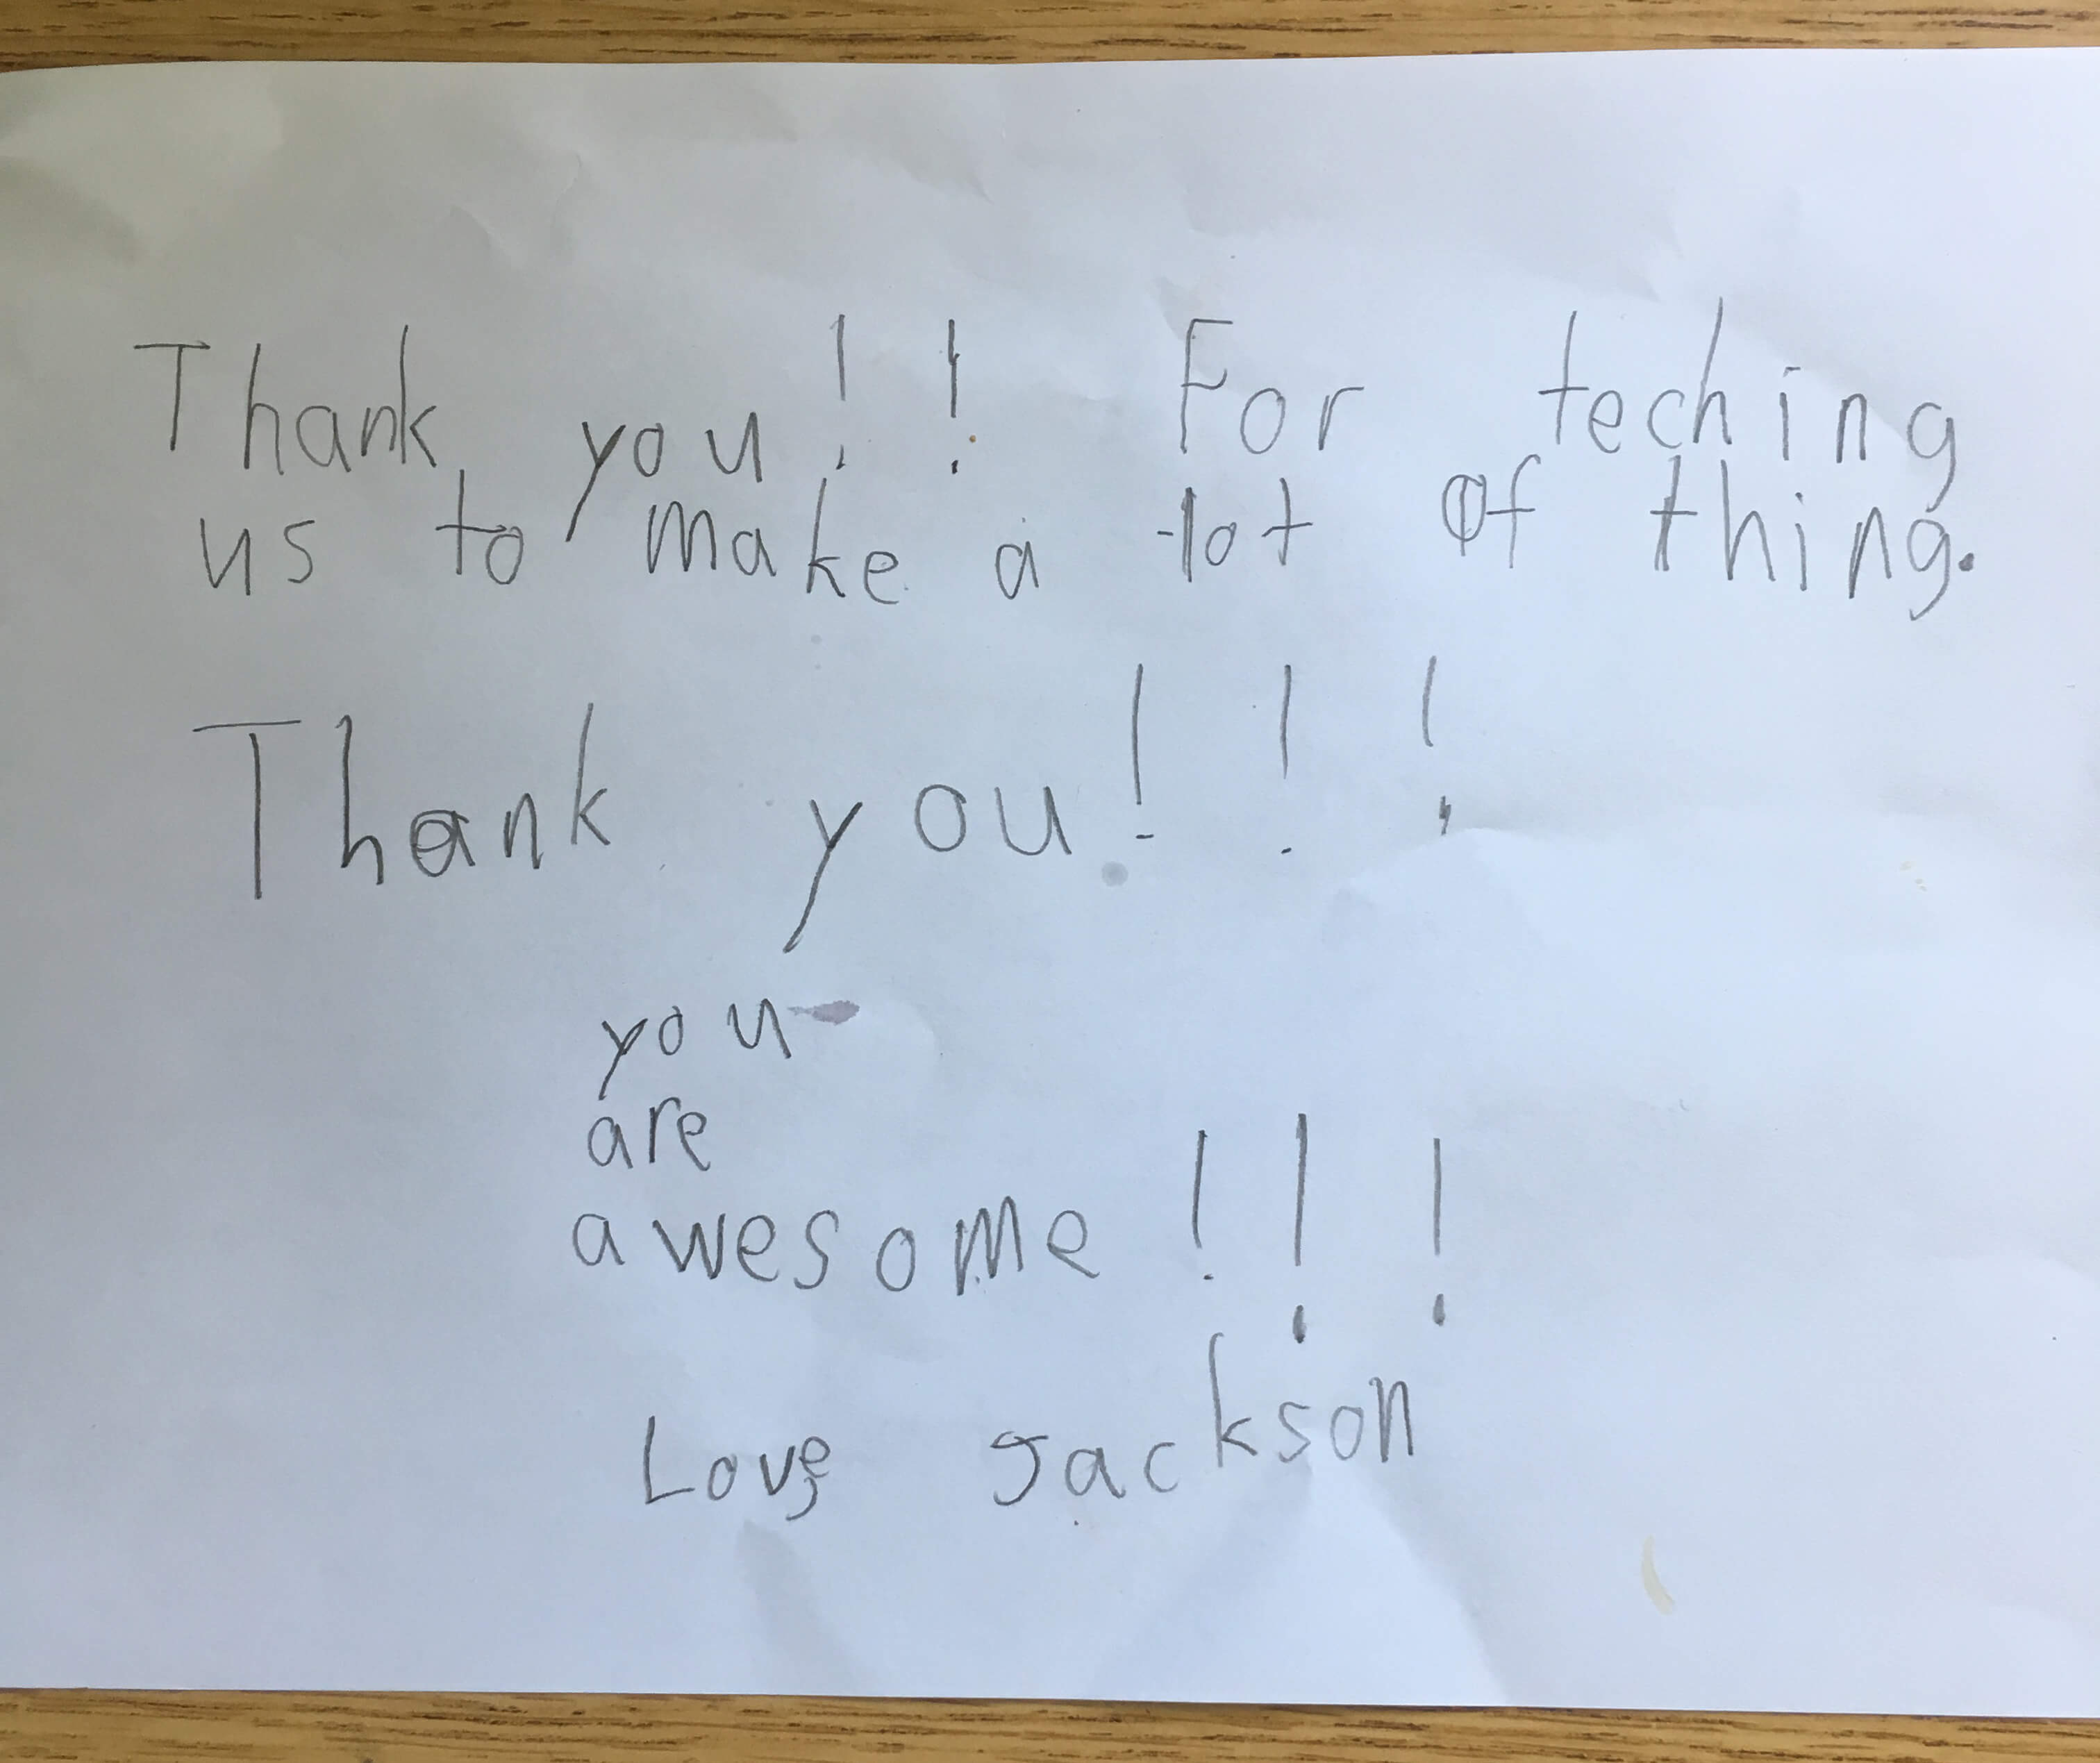 Thank you!! For teching
us to make a lot of thing.
Thank you!!!
you
are
awesome!!!
Love, Jackson